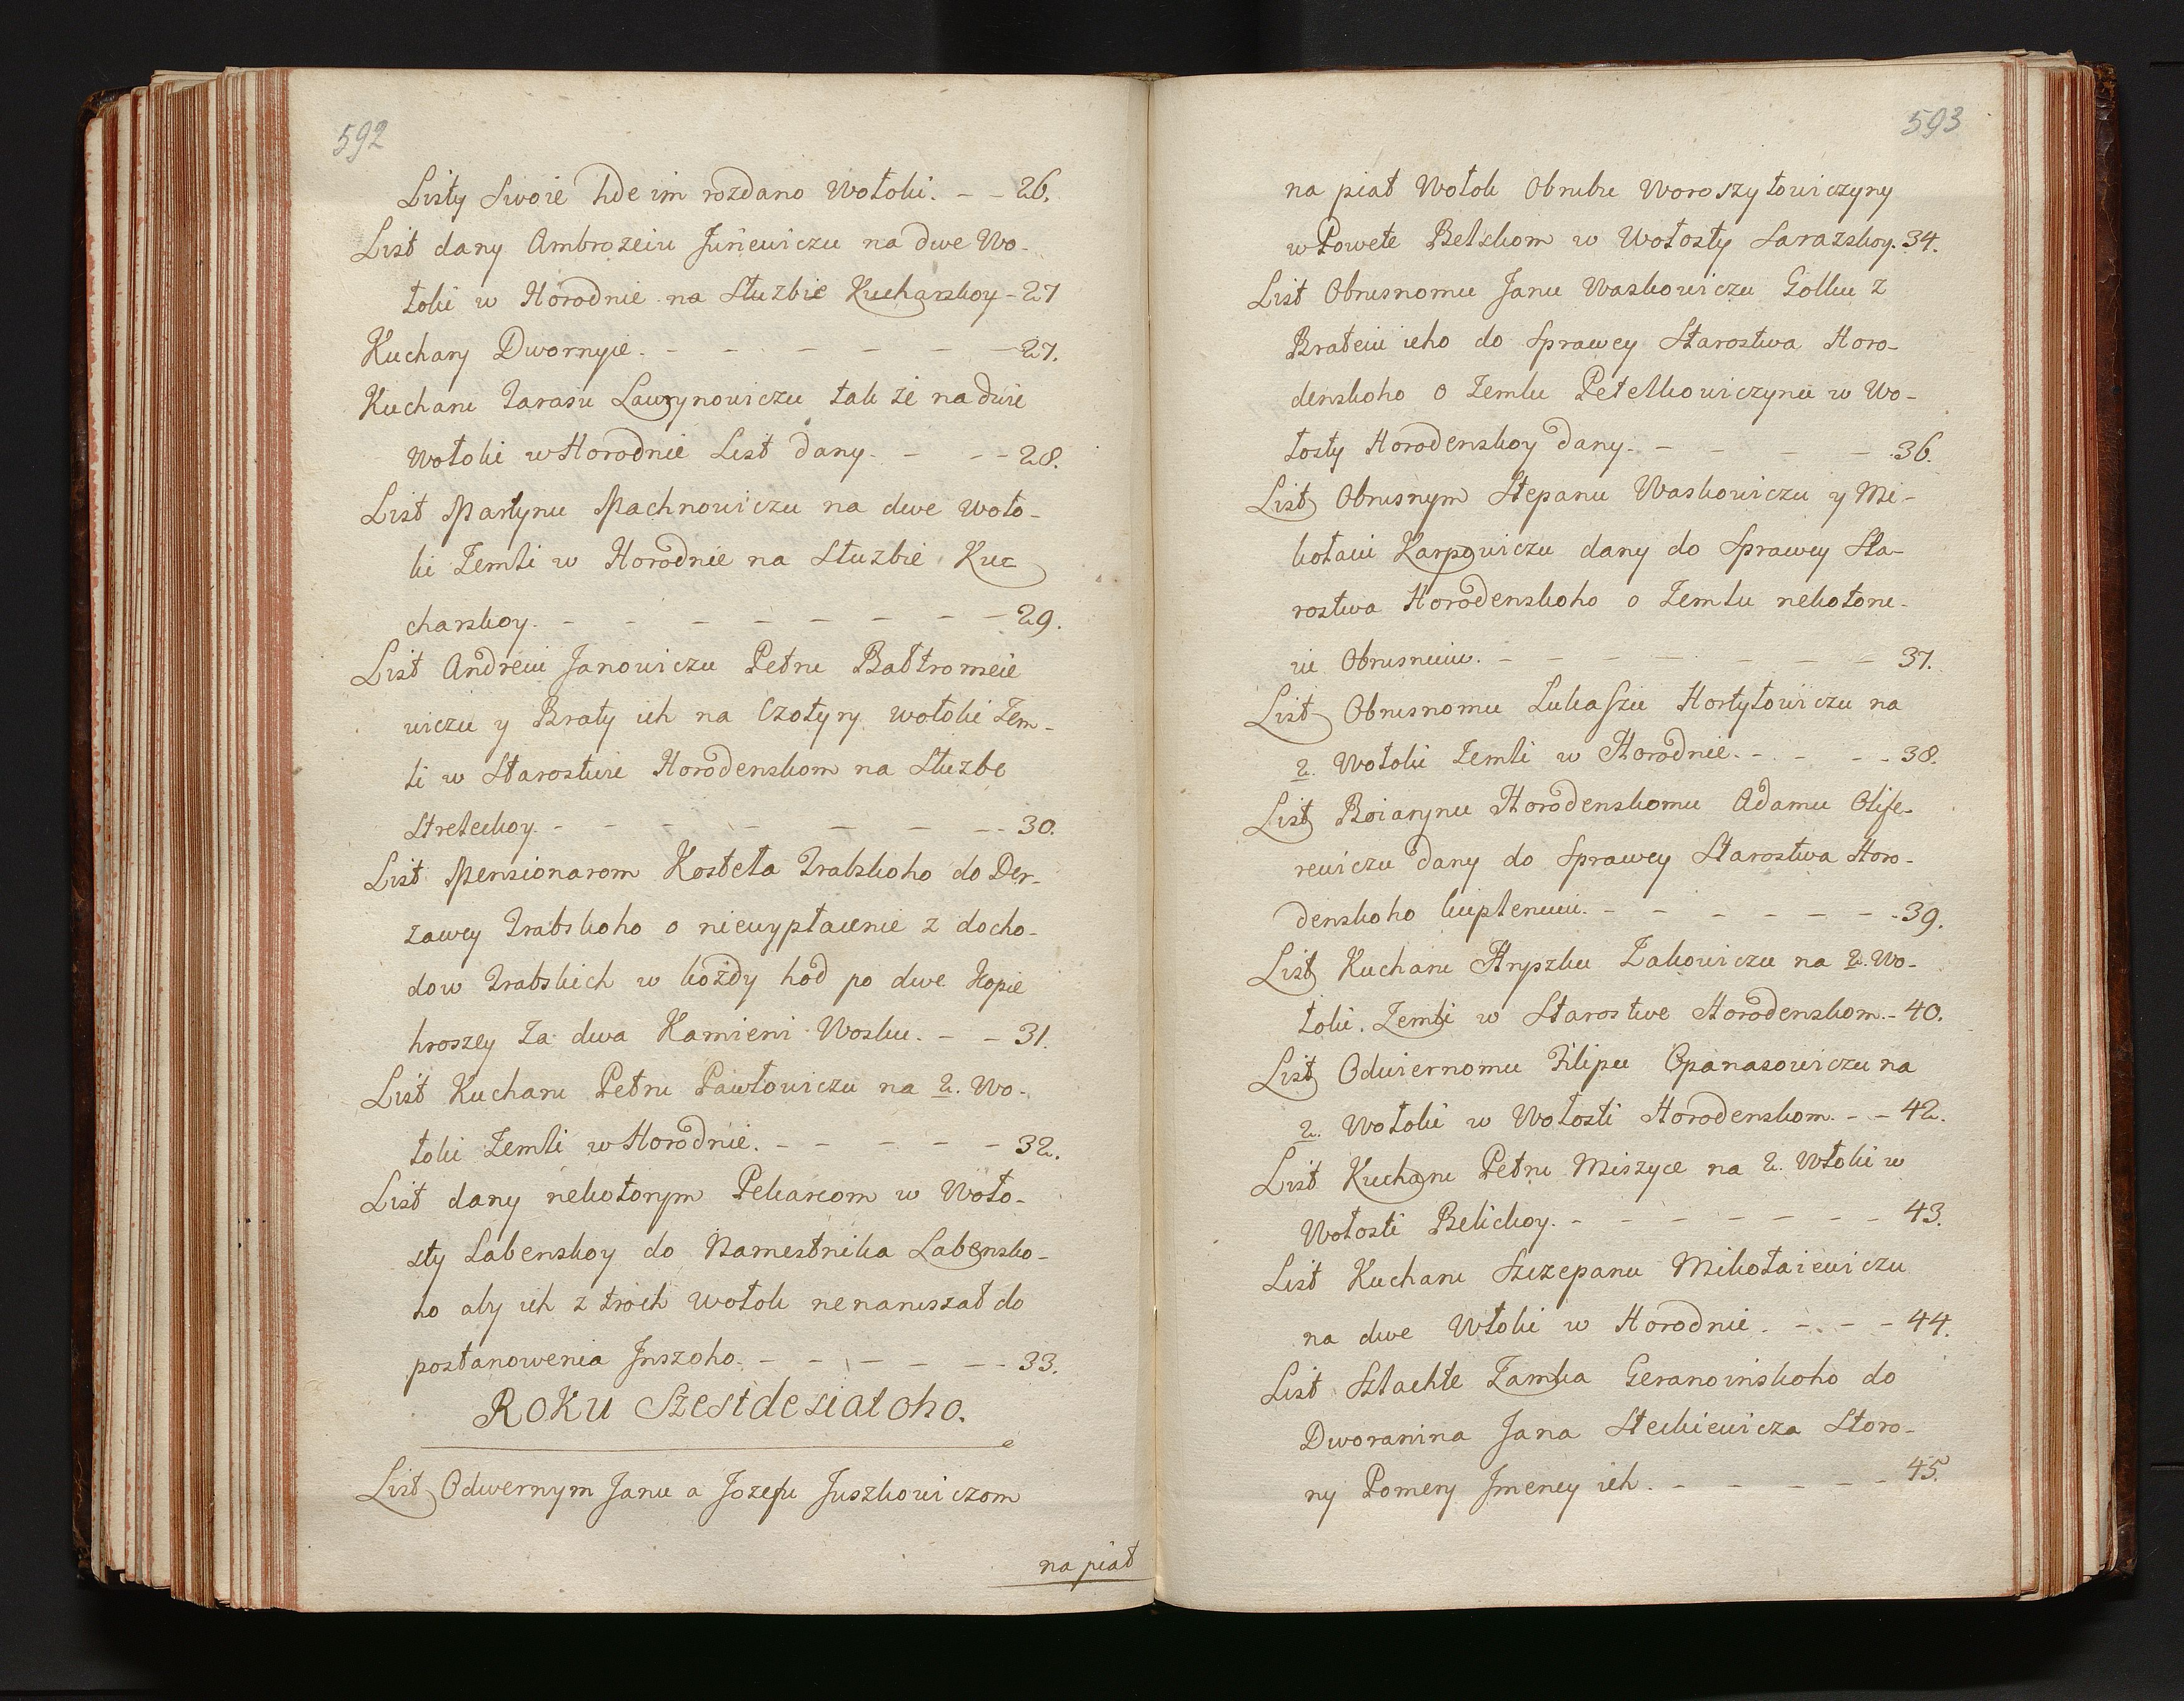 592
Listy Swoie hde im rozdano Wołoki. - - 26.
List dany Ambrozeiu Juriewiczu na dwe Wo-
łoki w Horodnie na Służbie Kucharskoy - 27
Kuchary Dwornyie. - - - - - - 27.
Kucharu Tarasu Lawrynowiczu tak że na dwie
Wołoki w Horodnie List dany. - - - 28.
List Martynu Machnowiczu na dwe Woło-
ki Zemli w Horodnie na Służbie Kuc
charskoy. - - - - - - - - 29.
List Andreiu Janowiczu Petru Bałtromeie
wiczu y Braty ich na Czotyry wołoki Zem-
li w Starostwie Horodenskom na Służbe
Streleckoy. - - - - - - - 30.
List Pensionarom Kosteła Trabskoho do Der-
zawcy Trabskoho o niewypłacenie z docho-
dow Trabskich w kożdy hod po dwe Kopie
hroszey Za dwa Kamieni Wosku. - - 31.
List Kucharu Petru Pawłowiczu na 2. Wo-
łoki Zemli w Horodnie. - - - - - 32.
List dany nekotorym Pekarcom w Woło-
sty Labenskoy do Namestnika Labensko-
ho aby ich z troch wołok nenaruszał do
postanowenia Jnszoho. - - - - - - 33.
ROKU Szestdesiatoho.
List Odwernym Janu a Jozefu Juszkowiczom
na piat
593
na piat Wołok Obrubu Woroszyłowiczyny
w Powete Belskom w Wołosty Sarazskoy. 34.
List Obrusnomu Janu Waskowiczu Golku z
Brateiu ieho do Sprawcy Starostwa Horo-
denskoho o Zemlu Petelkowiczynu w Wo-
łosty Horodenskoy dany. - - - - - 36.
List Obrusnym Stepanu Waskowiczu y Mi-
kołaiu Karpowiczu dany do Sprawcy Sta-
rostwa Horodenskoho o Zemlu nekotoru-
iu Obrusnuiu. - - - - - - - 37.
List Obrusnomu Lukaszu Hortyłowiczu na
2. Wołoki Zemli w Horodnie. - - - - 38.
List Boiarynu Horodenskomu Adamu Olife-
rewiczu dany do Sprawcy Starostwa Horo-
denskoho kuplenuiu. - - - - - - 39.
List Kucharu Hryszku Zakowiczu na 2. Wo-
łoki Zemli w Starostwe Horodenskom. - 40.
List Odwiernomu Filipu Opanasowiczu na
2. Wołoki w Wołosti Horodenskom. - - 42.
List Kucharu Petru Miszyce na 2. Włoki w
Wołosti Belickoy. - - - - - - - 43.
List Kucharu Szczepanu Mikołaiewiczu
na dwe Włoki w Horodnie. - - - 44.
List Szlachte Zamka Geranoinskoho do
Dworanina Jana Steckiewicza Storo-
ny Pomery Jmeney ich. - - - - - 45.